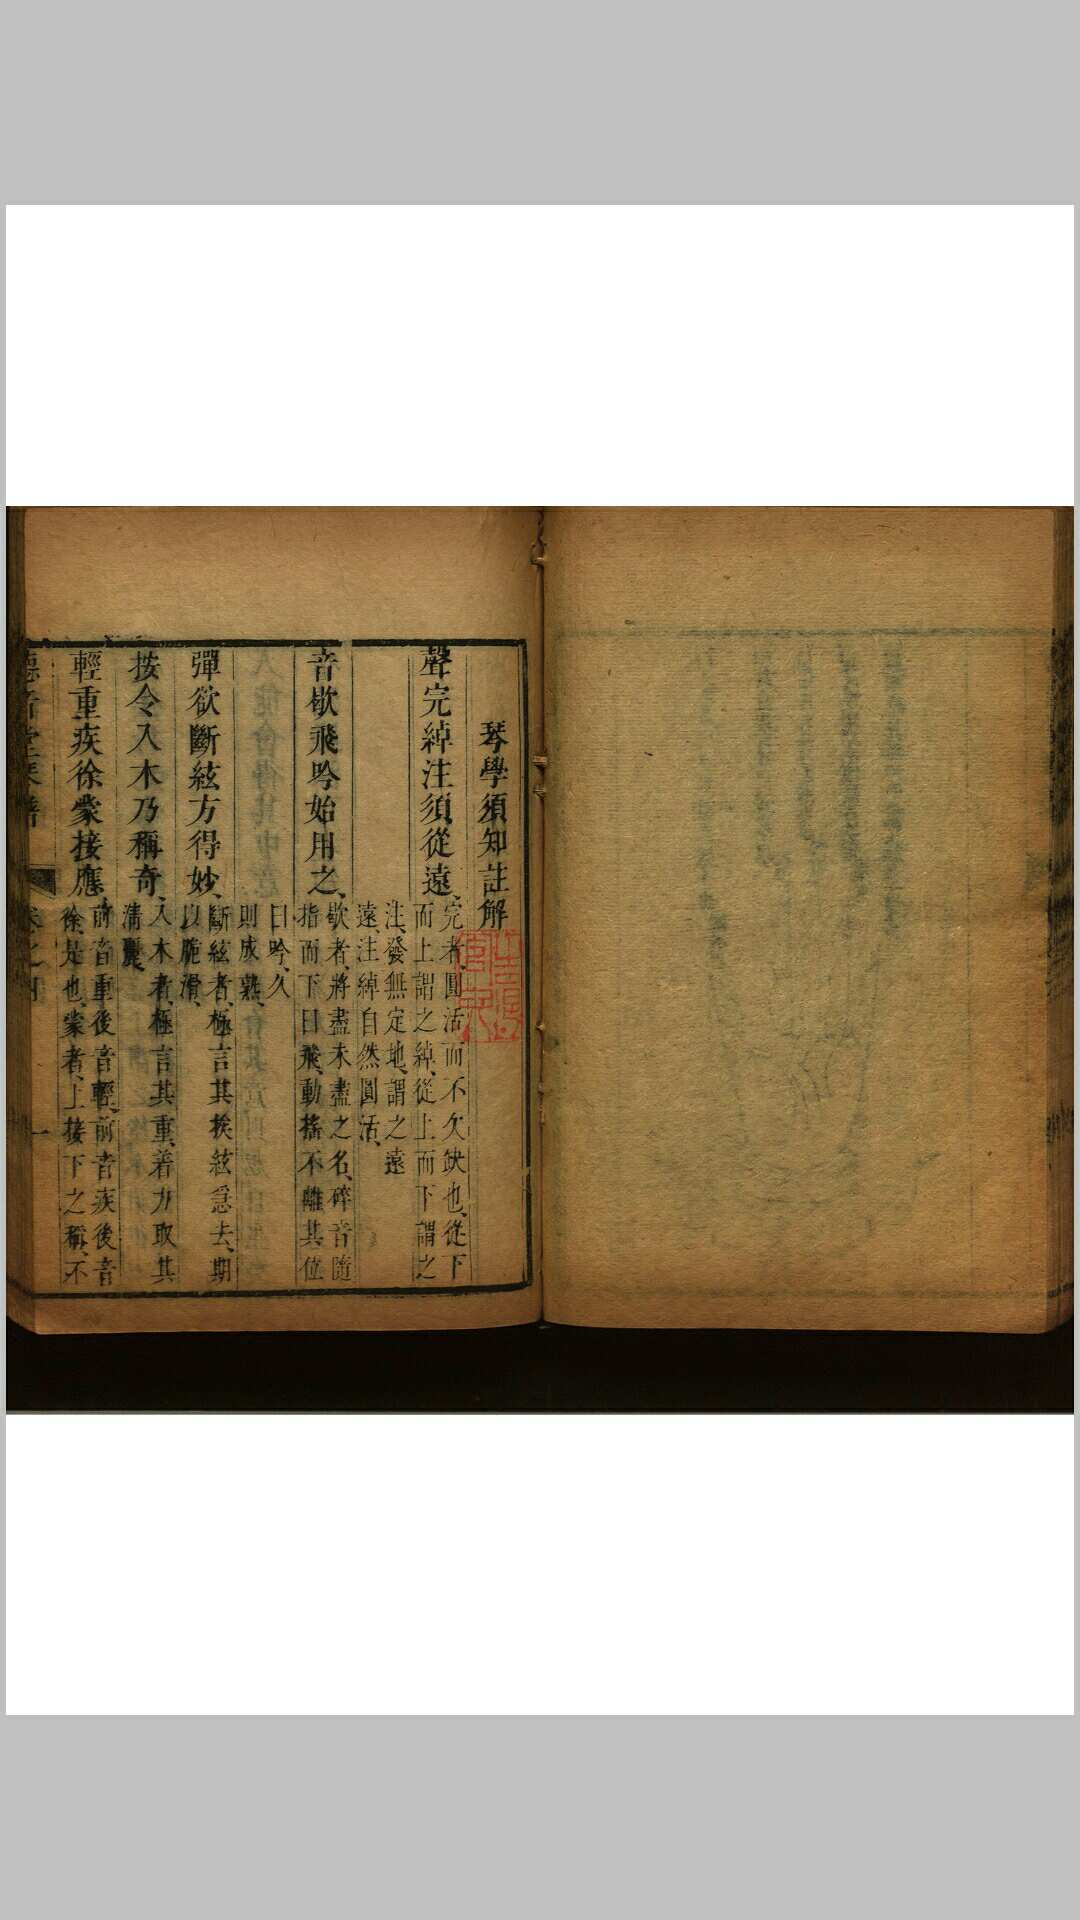 琴學須知註解
聲完綽注須從遠、完者、圓活而不欠缺也、從下
而上謂之綽、從上而下謂之
注、發無定地、謂之遠
遠、注綽自然圓活、
音歇飛吟始用之、歇者、將盡未盡之名、碎音隨
指而下曰飛、動搖不離其位
曰吟、久
則成熟、
彈欲斷絃方得妙、斷絃者、極言其挨絃急去、期
以脆滑、
按令入木乃稱奇、入木者、極言其重、着力取其
清麗、
輕重疾徐蒙接應、前音重後音輕、前音疾後音
徐、是也、蒙者、上接下之稱、不
德音堂琴譜 卷之四 一